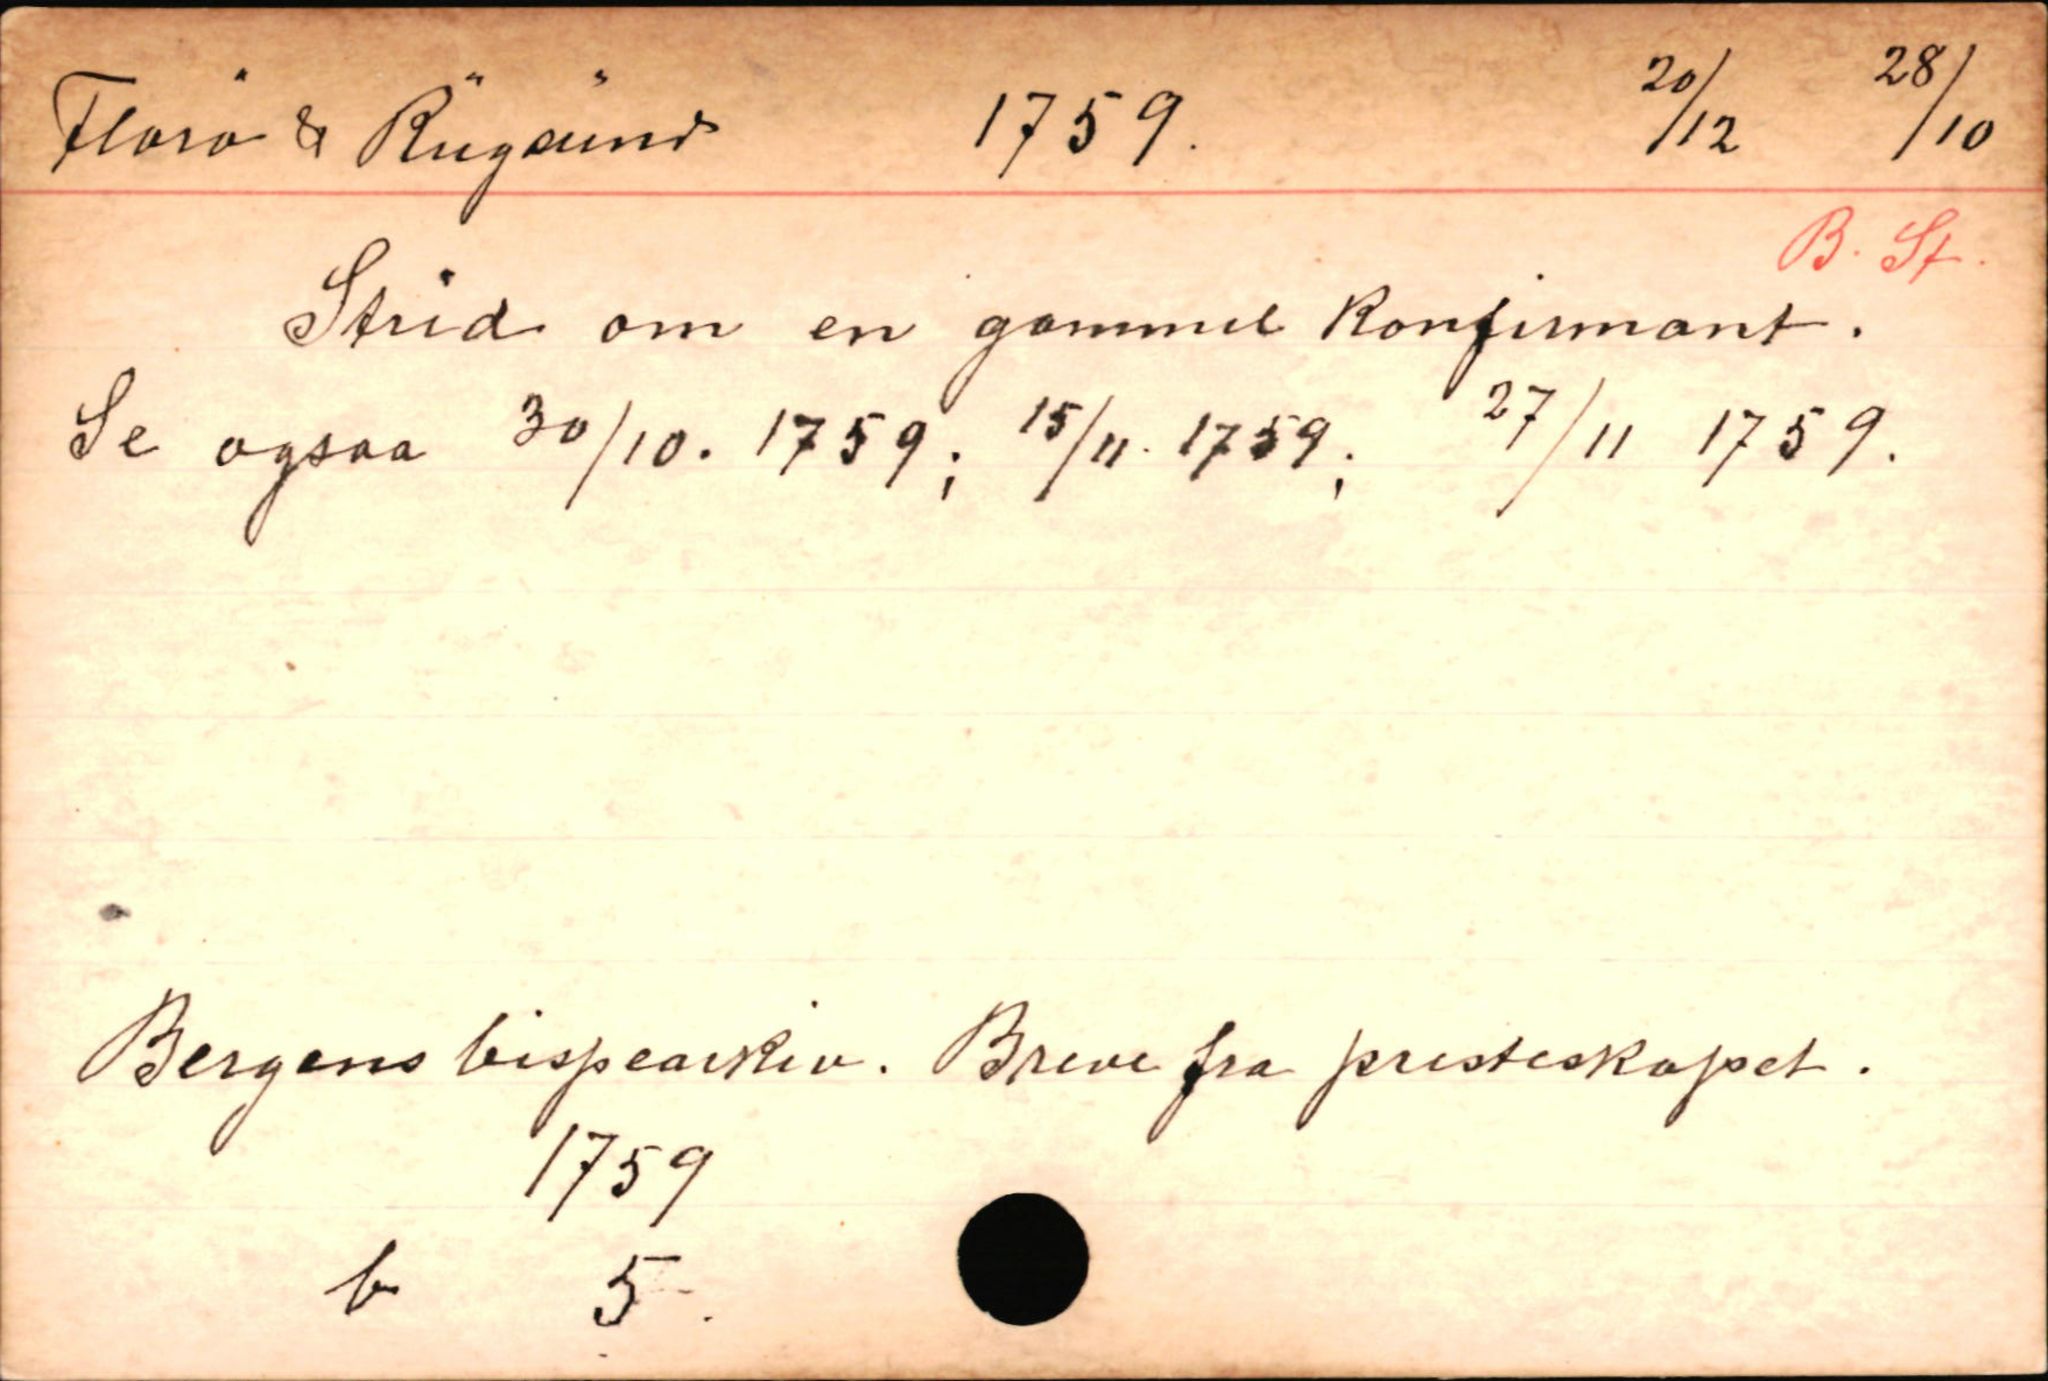 Florö & Rugsund 1759. 20/12 28/10
B. St.
Strid om en gammel konfirmant.
Se ogsaa 30/10. 1759; 15/11. 1759; 27/11 1759.
Bergens bispearkiv. Breve fra presteskapet.
1759
b 5.